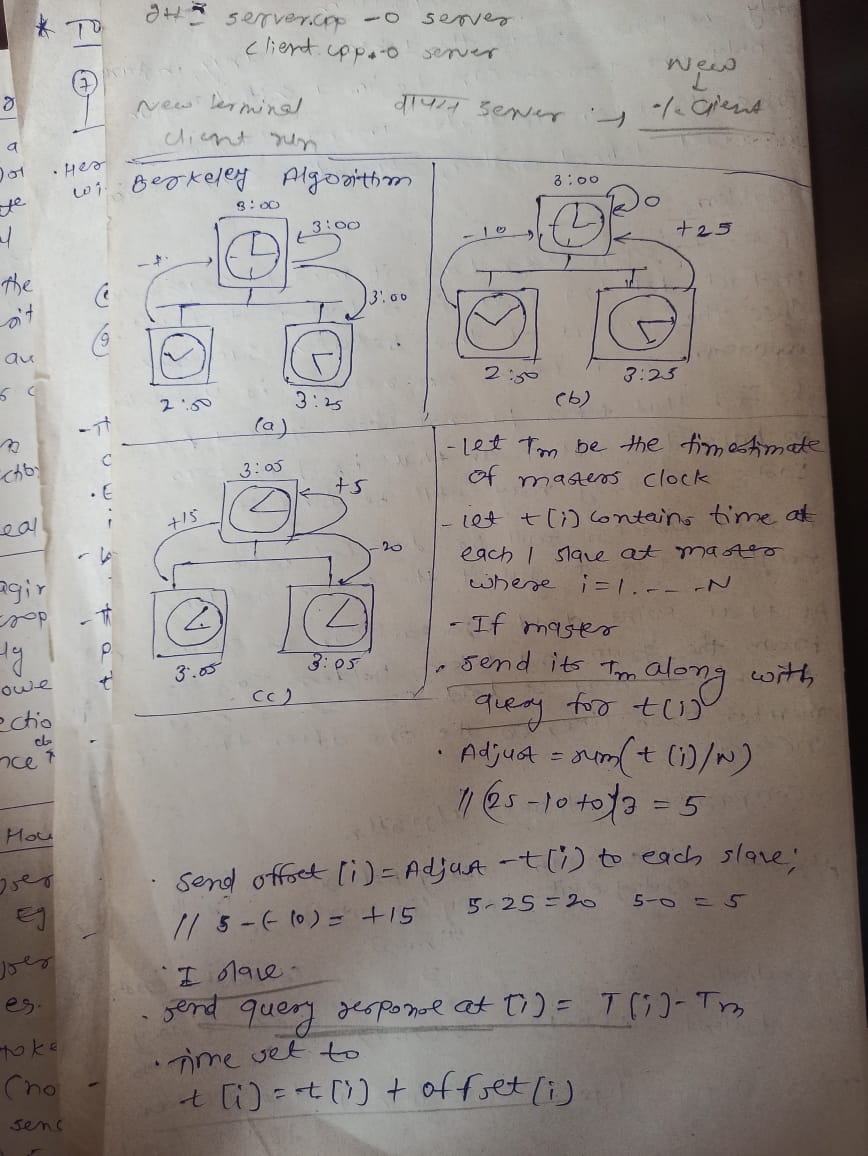 g++ server.cpp -o server
client.cpp -o server
New
New terminal
client run
वापस server → ./. Client
Berkeley Algorithm
3:00
3:00
3:00
2:50
3:25
(a)
3:00
0
-10
+25
2:50
3:25
(b)
3:05
+5
+15
-20
3:05
3:05
(c)
- Let Tm be the timestimate
of masters clock
- Let t(i) contains time at
each 1 slave at master
where i=1.---N
- If master
. Send its Tm along with
query for t(i)
. Adjust = sum(t(i)/N)
// (25-10+0)/3 = 5
. Send offset [i] = Adjust - t(i) to each slave;
// 5-(-10) = +15 5-25=20 5-0 = 5
. I slave -
. send query response at T(i) = T(i)-Tm
. Time set to
t[i] = t[i] + offset[i]
* TO
7
. Her
wi
the
au
eal
agir
oop
ly
owe
ectio
nce
How
Eg
es.
toke
(no
senc